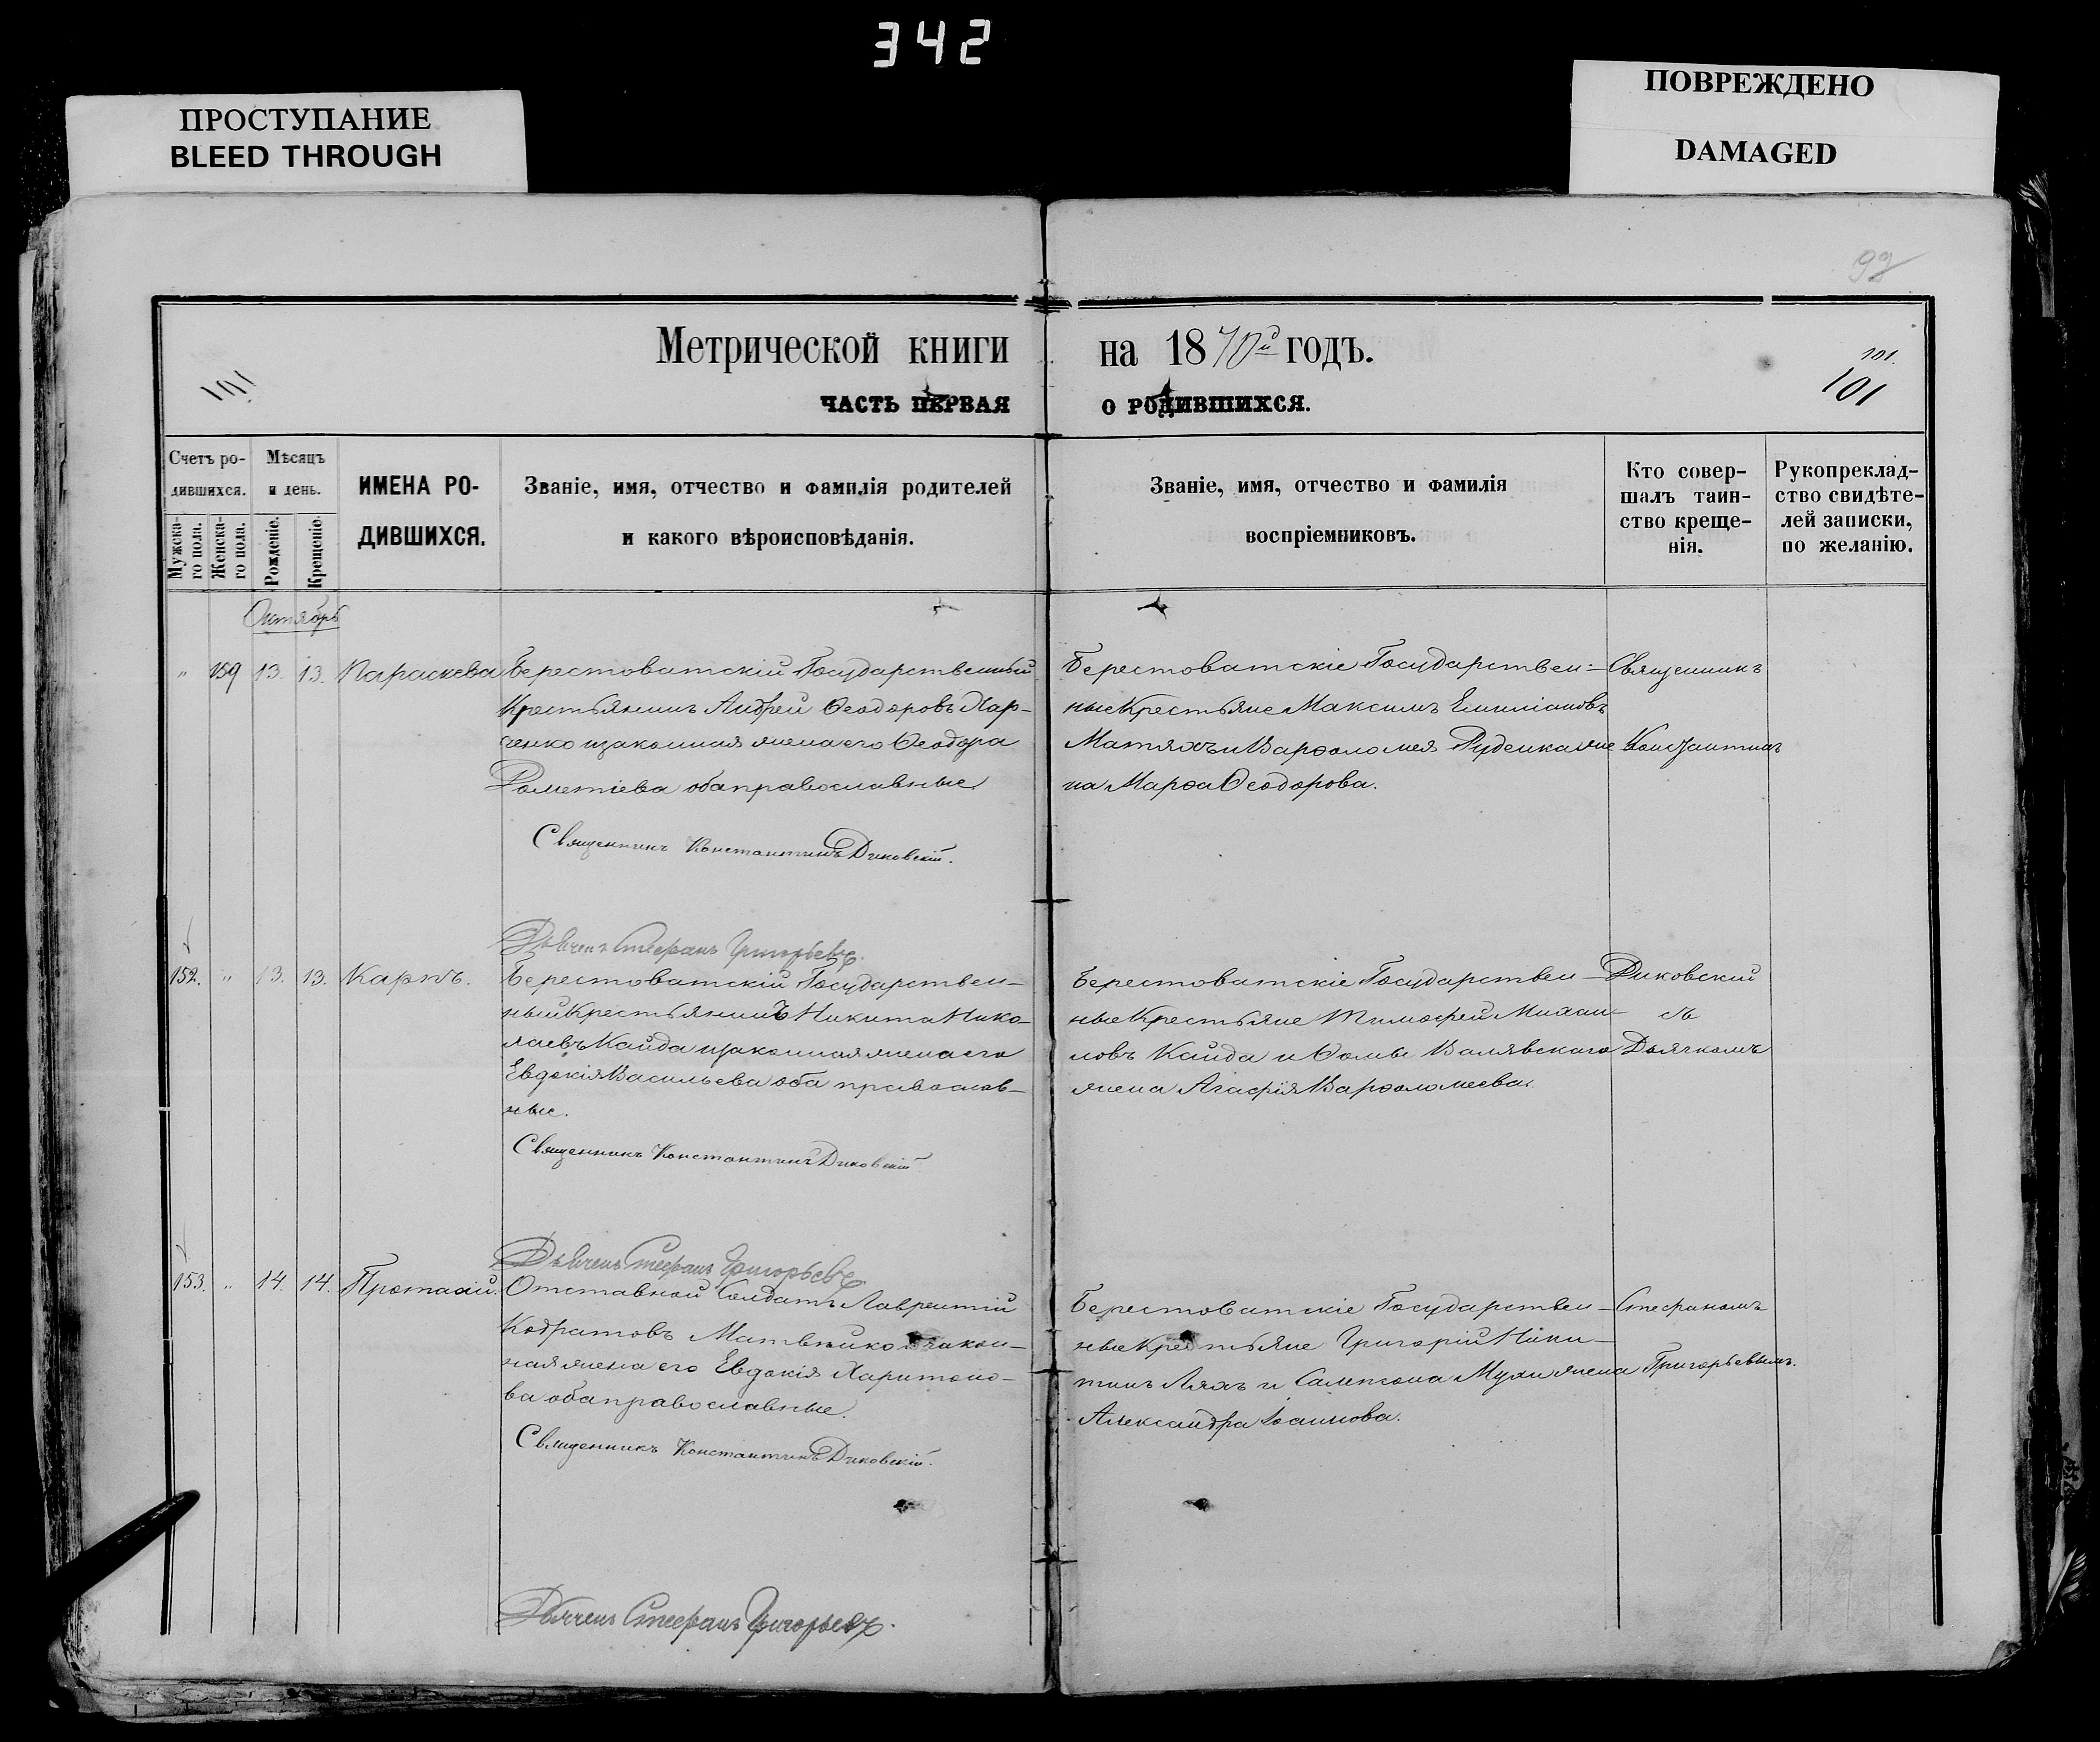 342
ПРОСТУПАНИЕ
BLEED THROUGH
ПОВРЕЖДЕНО
DAMAGED
Метрической книги на 1870й годъ.
101
101.
101
ЧАСТЬ ПЕРВАЯ О РОДИВШИХСЯ.
Счетъ ро-
дившихся.
Мужска-
го пола.
Женска-
го пола.
Мѣсяцъ
и день.
Рожденіе.
Крещеніе.
ИМЕНА РО-
ДИВШИХСЯ.
Званіе, имя, отчество и фамилія родителей
и какого вѣроисповѣданія.
Званіе, имя, отчество и фамилія
воспріемниковъ.
Кто совер-
шалъ таин-
ство креще-
нія.
Рукоприклад-
ство свидѣте-
лей записки,
по желанію.
Октябрь
" 159 13. 13. Параскева
Берестоватскій Государственный
Крестьянинъ Андрей Ѳеодоровъ Хар-
ченко изаконная жена его Ѳеодора
обаправославные
Священникъ Константинъ Диковскій.
Дьячекъ Стефанъ Григорьевъ.
Берестоватскіе Государствен-
ные Крестьяне Максимъ Емиліановъ
Матяхъ и Варѳоломея Руденка же
на Марѳа Ѳеодорова.
Священникъ
Константинъ
152. " 13. 13. Карпъ.
Берестоватскій Государствен-
ный Крестьянинъ Никита Нико-
лаевъ Кайда изаконная жена его
Евдокія Васильева оба православ-
ные.
Священникъ Константинъ Диковскій
Дьячекъ Стефанъ Григорьевъ
Берестоватскіе Государствен-
ные Крестьяне Тимофей Михаи-
ловъ Кайда и Ѳомы Валявскаго
жена Агафія Варѳоломеева.
Диковскій
съ
Дьячкомъ
153. " 14. 14. Протасій.
Отставной Солдатъ Лаврентій
Кодратовъ Матвѣико изакон-
ная жена его Евдокія Харитоно-
ва обаправославные.
Священникъ Константинъ Диковскій.
Дьячекъ Стефанъ Григорьевъ.
Берестоватскіе Государствен-
ные Крестьяне Григорій Ники-
тинъ Ляхъ и Сампсона Мухи жена
Александра Іоаннова.
Стефаномъ
Григорьевымъ.